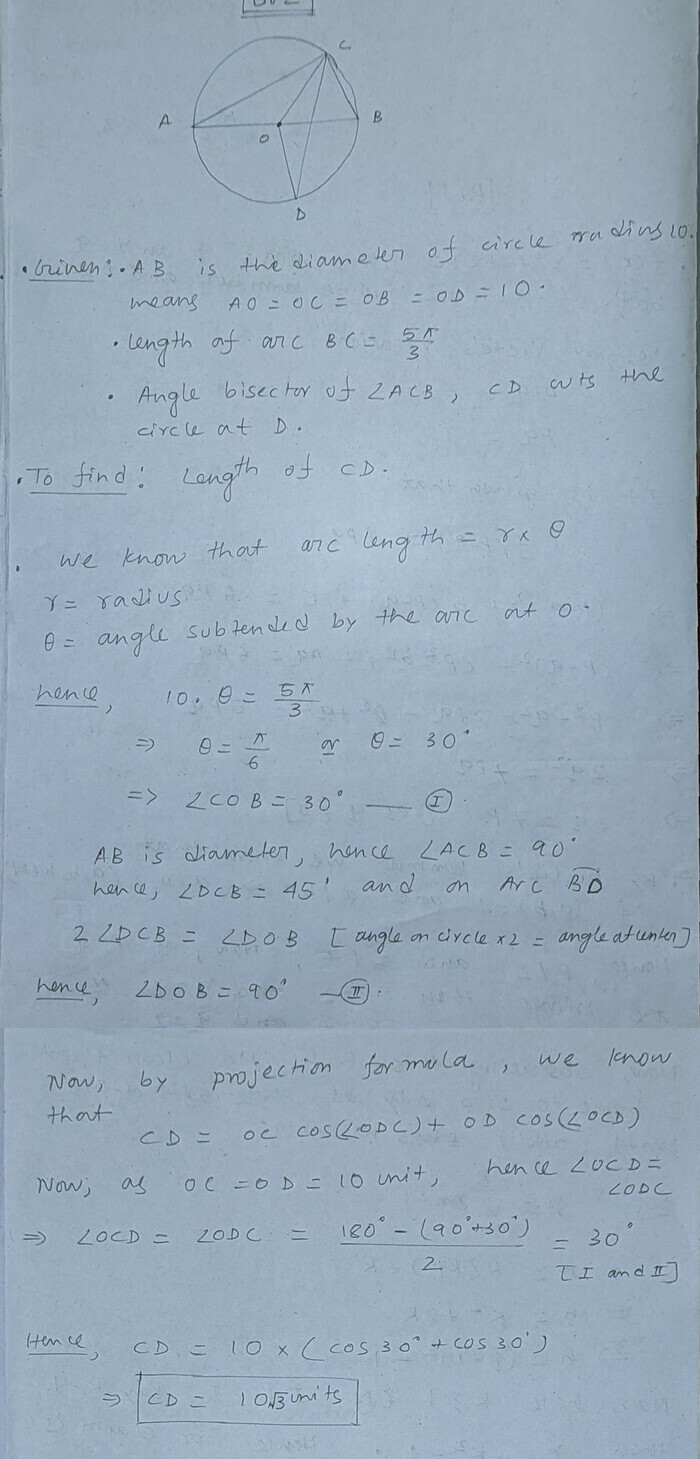 C
A
B
O
D
• Given: • AB is the diameter of circle radius 10.
means AO = OC = OB = OD = 10.
• length of arc BC = 5π/3
• Angle bisector of ∠ACB, CD cuts the
circle at D.
• To find: Length of CD.
• We know that arc length = r × θ
r = radius
θ = angle subtended by the arc at O.
hence, 10. θ = 5π/3
⇒ θ = π/6 or θ = 30°
=> ∠COB = 30° — I
AB is diameter, hence ∠ACB = 90°
hence, ∠DCB = 45° and on Arc BD
2 ∠DCB = ∠DOB [angle on circle × 2 = angle at center]
hence, ∠DOB = 90° — II.
Now, by projection formula, we know
that
CD = OC cos(∠ODC) + OD cos(∠OCD)
Now, as OC = OD = 10 unit, hence ∠OCD =
∠ODC
⇒ ∠OCD = ∠ODC = 180° - (90° + 30°)/2 = 30°
[I and II]
Hence, CD = 10 × (cos 30° + cos 30°)
⇒ CD = 10√3 units